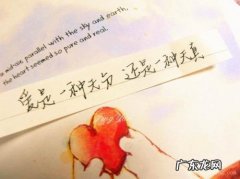 mid-air, parallel with the sky and earth,
the heart seemed so pure and real.
爱是一种天分 还是一种天真
广东龙网